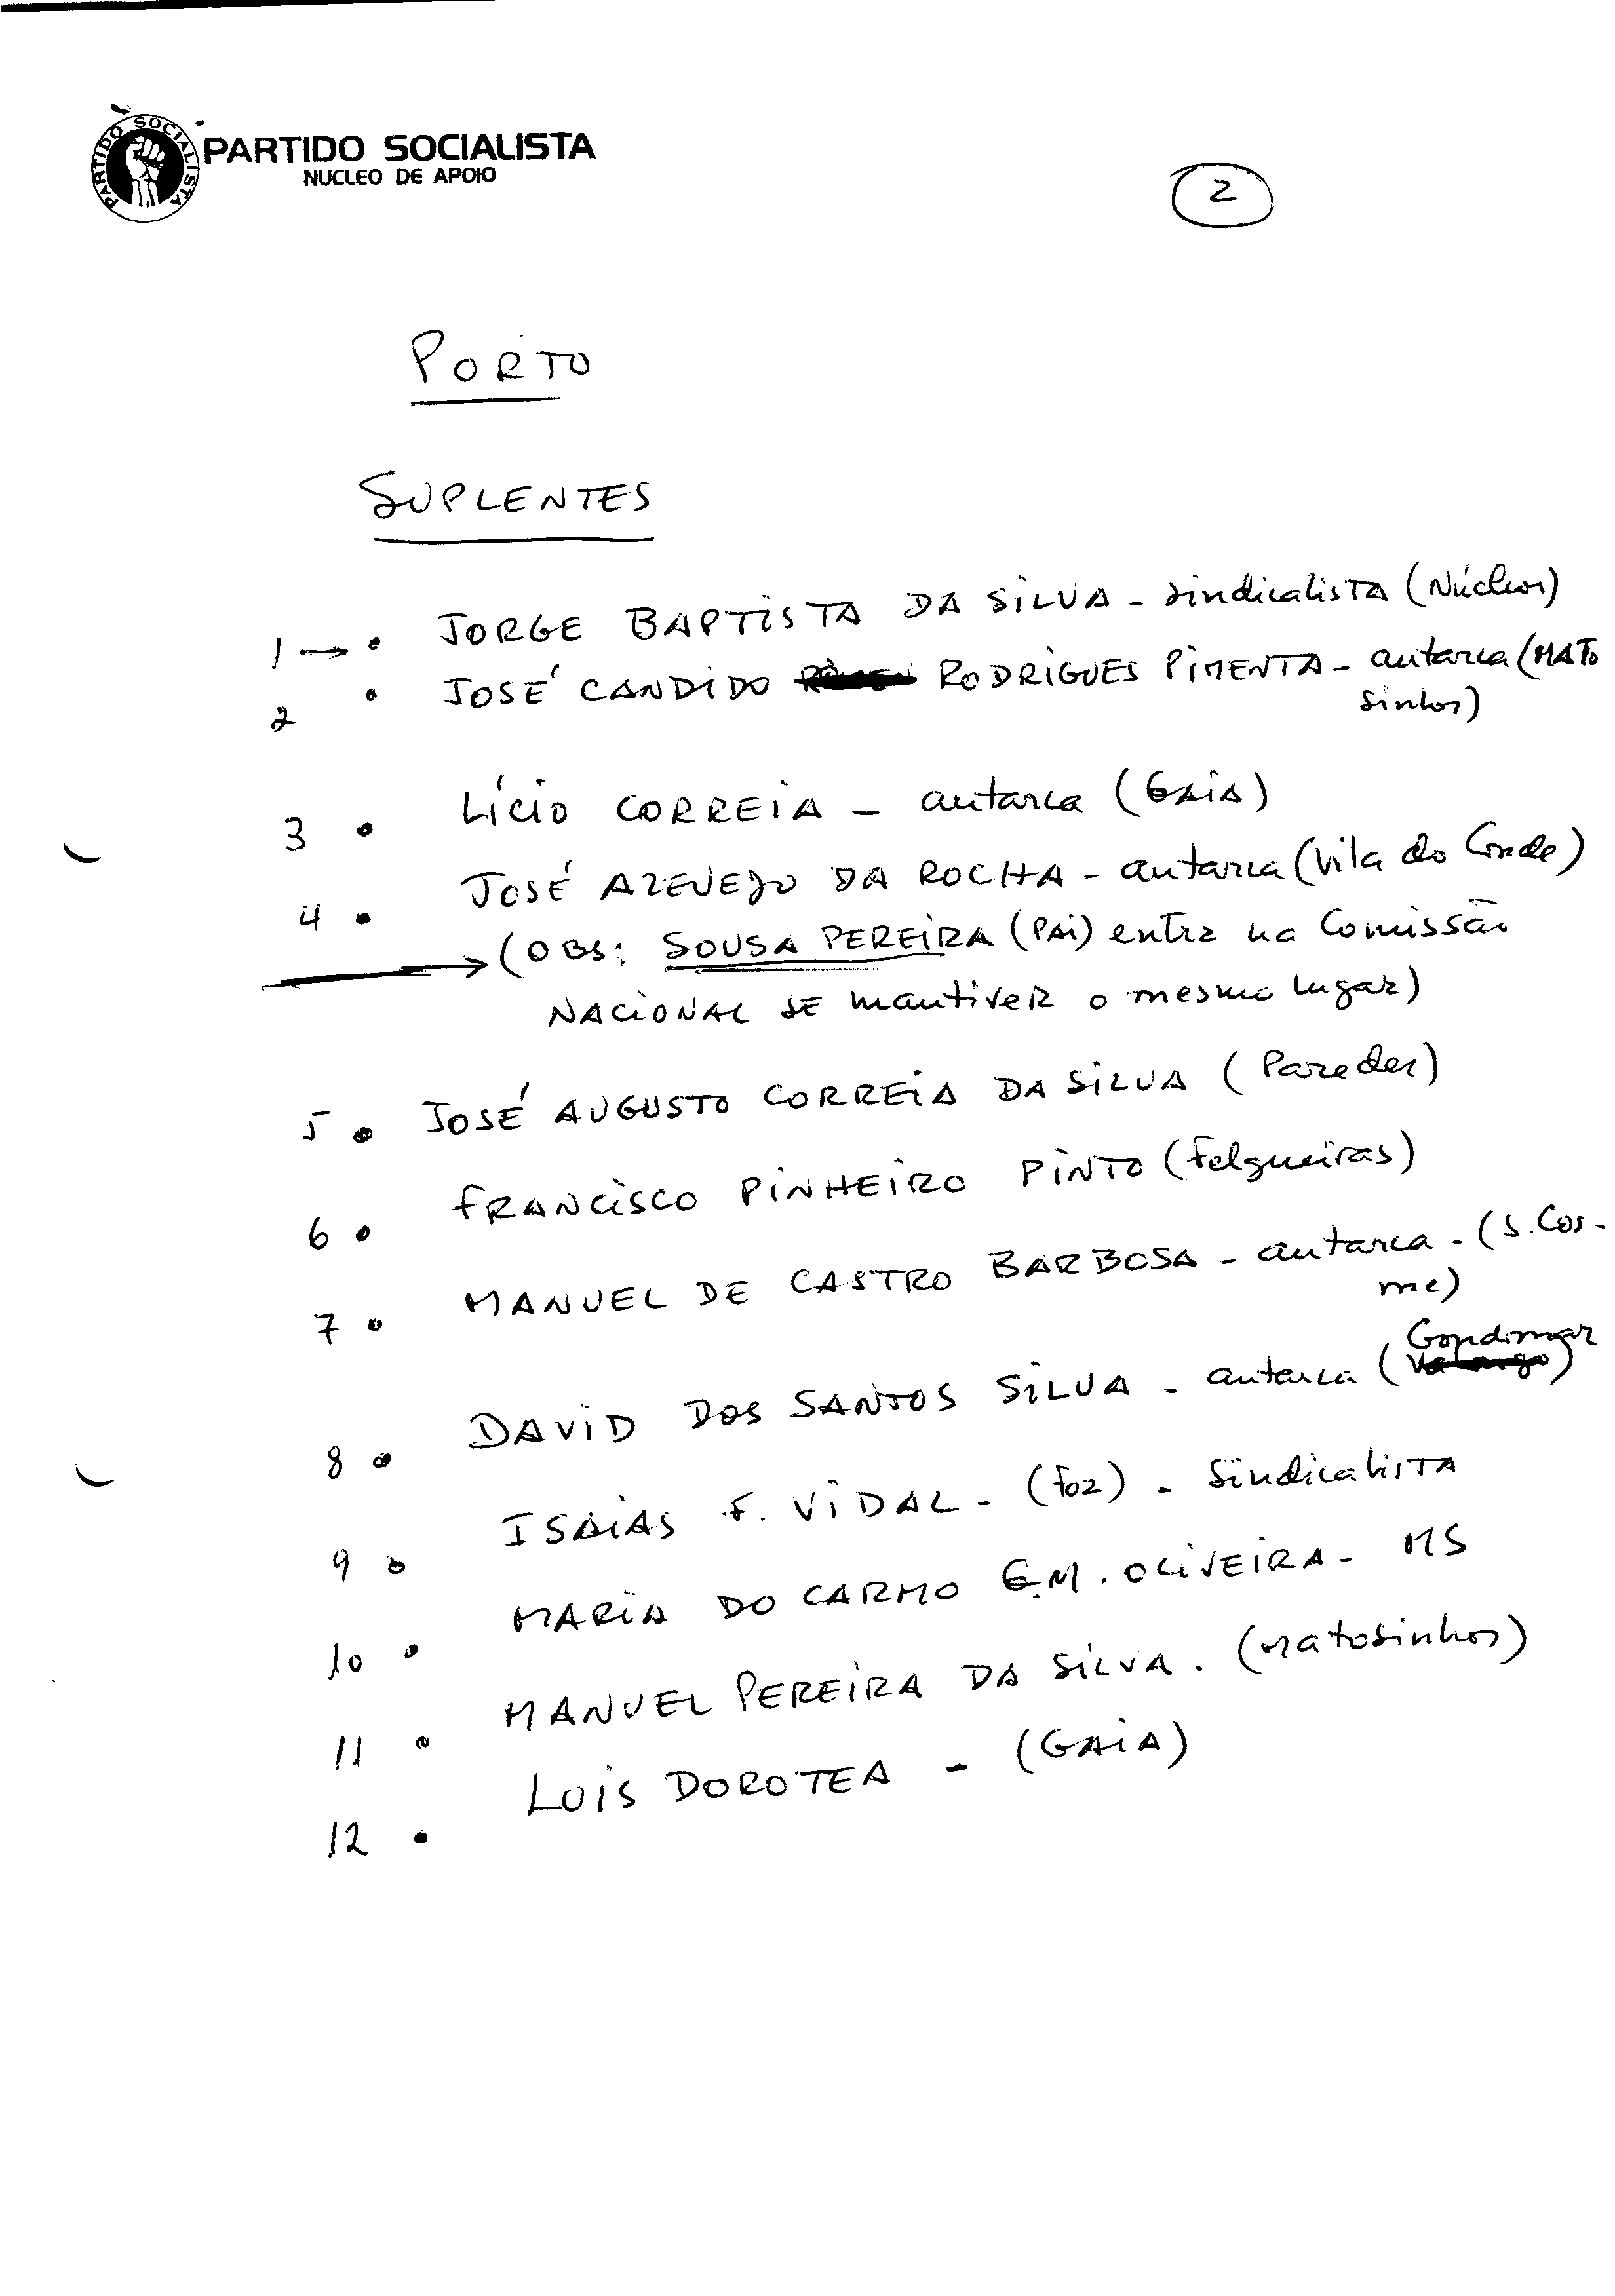 PARTIDO SOCIALISTA
PARTIDO SOCIALISTA
NUCLEO DE APOIO
2
PORTO
SUPLENTES
1 → • JORGE BAPTISTA DA SILVA - sindicalista (Núcleos)
2 • JOSÉ CANDIDO RODRIGUES PIMENTA - autarca (MATO
sinhos)
3 • LÍCIO CORREIA - autarca (GAIA)
4 • JOSÉ AZEVEDO DA ROCHA - autarca (Vila do Conde)
→ (OBS: SOUSA PEREIRA (PAI) entra na Comissão
NACIONAL SE mantiver o mesmo lugar)
5 • JOSÉ AUGUSTO CORREIA DA SILVA (Paredes)
6 • FRANCISCO PINHEIRO PINTO (Felgueiras)
7 • MANUEL DE CASTRO BARBOSA - autarca - (S. Cos-
me)
Gondomar
8 • DAVID DOS SANTOS SILVA - autarca (Valongo)
9 • ISAIAS F. VIDAL - (Foz) - Sindicalista
10 • MARIA DO CARMO G.M. OLIVEIRA - MS
11 • MANUEL PEREIRA DA SILVA. (Matosinhos)
12 • LUIS DOROTEA - (GAIA)